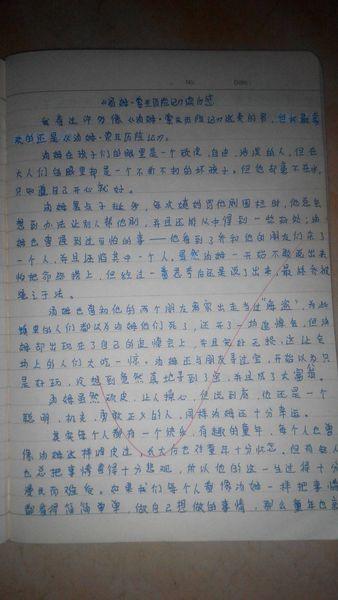 No:
Date:
《汤姆·索亚历险记》读后感
我看过许多像《汤姆·索亚历险记》这类的书，但我最喜
欢的还是《汤姆·索亚历险记》。
汤姆在孩子们的眼里是一个顽皮、自由、活泼的人，但在
大人们的眼里却是一个不折不扣的坏孩子，但他却毫不在乎，
只知道自己开心就好。
汤姆是点子
每次姨妈罚他刷围栏时，他总会
想到办法让别人帮他刷，并且还能从中得到一些好处；汤
姆也曾遇到过可怕的事——他看到了乔和他的朋友们杀了
一个人，并且
其中一个人，虽然汤姆一开始不敢说出去
怕把命搭上，但经过一番思考后还是说了出来，最终
绳之于法。
汤姆也曾和他的两个朋友离家出走当过“海盗”，而此
镇里的人们都以为汤姆他们死了，还开了一场追悼会，但汤
姆却出现在了自己的追悼会上，并且完好无损，这让会
场上的人们大吃一惊。汤姆还与朋友寻过宝，开始以为只
是好玩，没想到竟然真地寻到了宝，并且成了大富翁。
汤姆虽然顽皮，让人操心，但说到底，他还是一个
聪明、机灵、勇敢正义的人，同样汤姆还十分幸运。
其实每个人都有一个快乐，有趣的童年，每个人也曾
像汤姆这样
过，长大后也许童年十分怀念，但有些人
也总把事情看得十分悲观，所以他的这一生过得十分
漫长而难受。如果我们每个人都像汤姆一样把事情
都看得简简单单，做自己想做的事情，那么童年也就